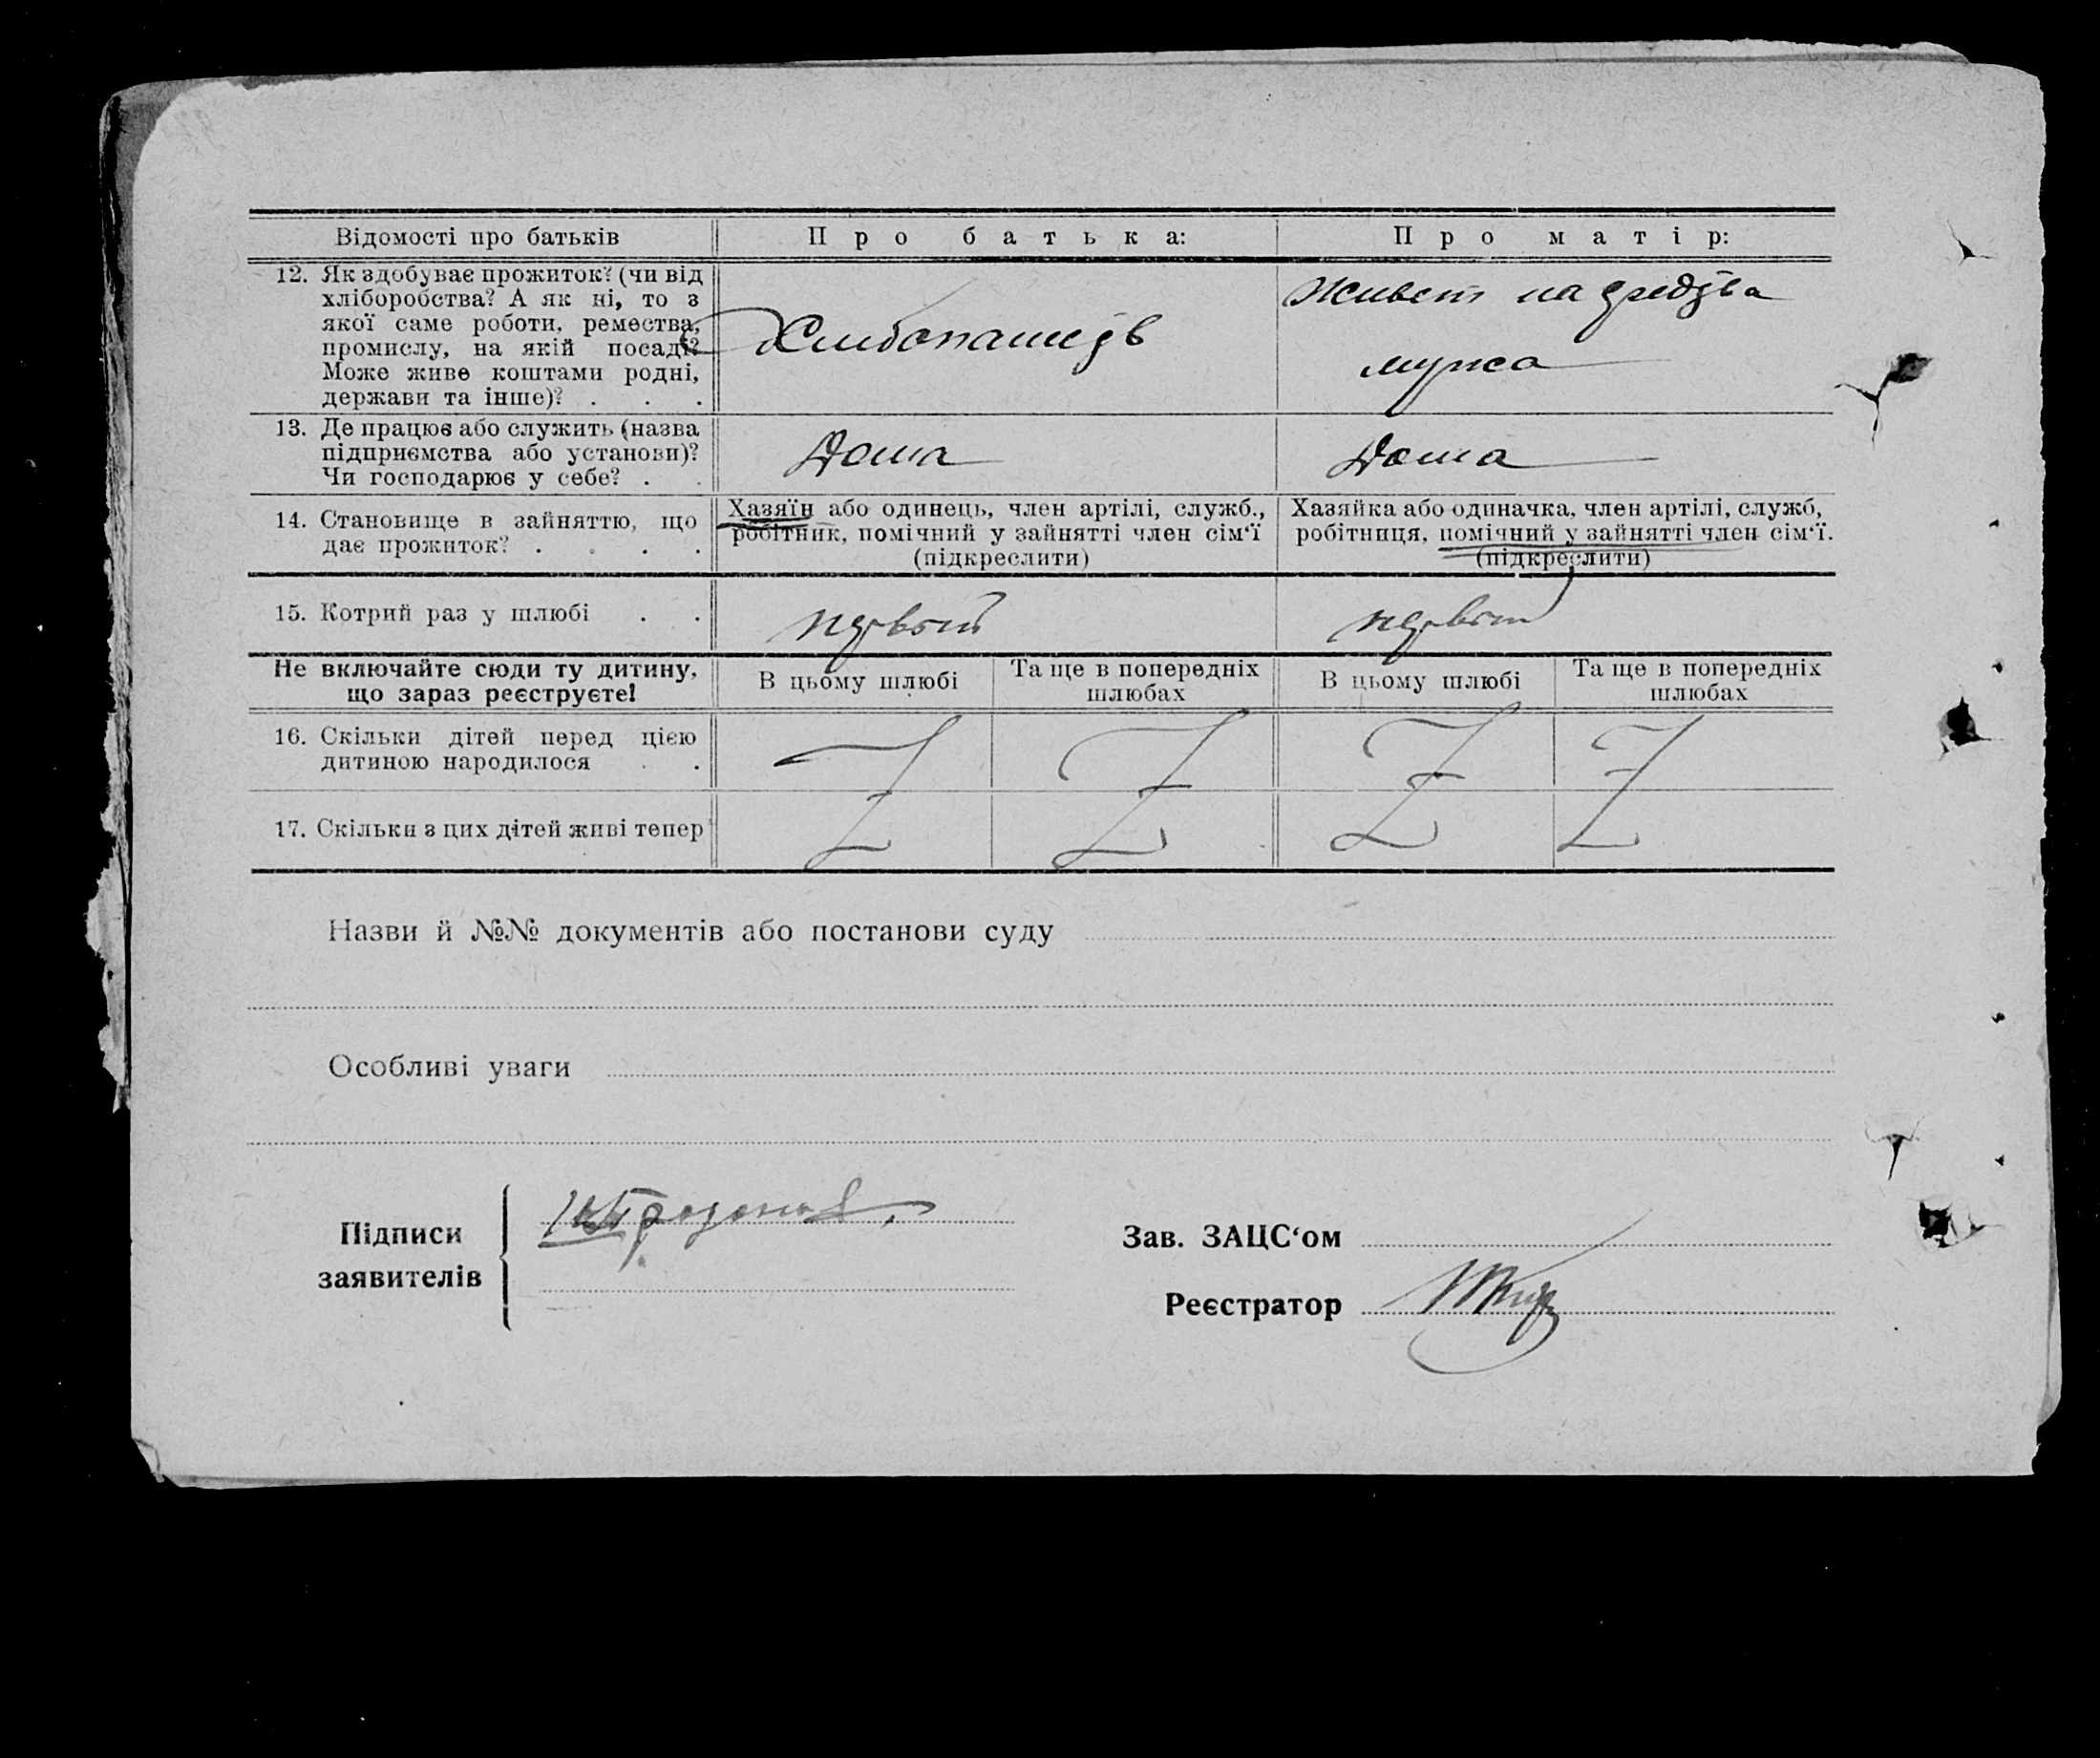 Відомості про батьків
Про батька:
Про матір:
12. Як здобуває прожиток? (чи від
хліборобства? А як ні, то з
якої саме роботи, ремества,
промислу, на якій посаді?
Може живе коштами родні,
держави та інше)? . . .
Живет на
мужа
13. Де працює або служить (назва
підприємства або установи)?
Чи господарює у себе? . .
Дома
Дома
14. Становище в зайняттю, що
дає прожиток? . . . .
Хазяїн або одинець, член артілі, служб.,
робітник, помічний у зайнятті член сім‘ї
(підкреслити)
Хазяйка або одиначка, член артілі, служб,
робітниця, помічний у зайнятті член сім‘ї.
(підкреслити)
15. Котрий раз у шлюбі . .
Не включайте сюди ту дитину,
що зараз реєструєте!
В цьому шлюбі
Та ще в попередніх
шлюбах
В цьому шлюбі
Та ще в попередніх
шлюбах
16. Скільки дітей перед цією
дитиною народилося . .
17. Скільки з цих дітей живі тепер
Назви й №№ документів або постанови суду
Особливі уваги
Підписи
заявителів
Зав. ЗАЦС‘ом
Реєстратор